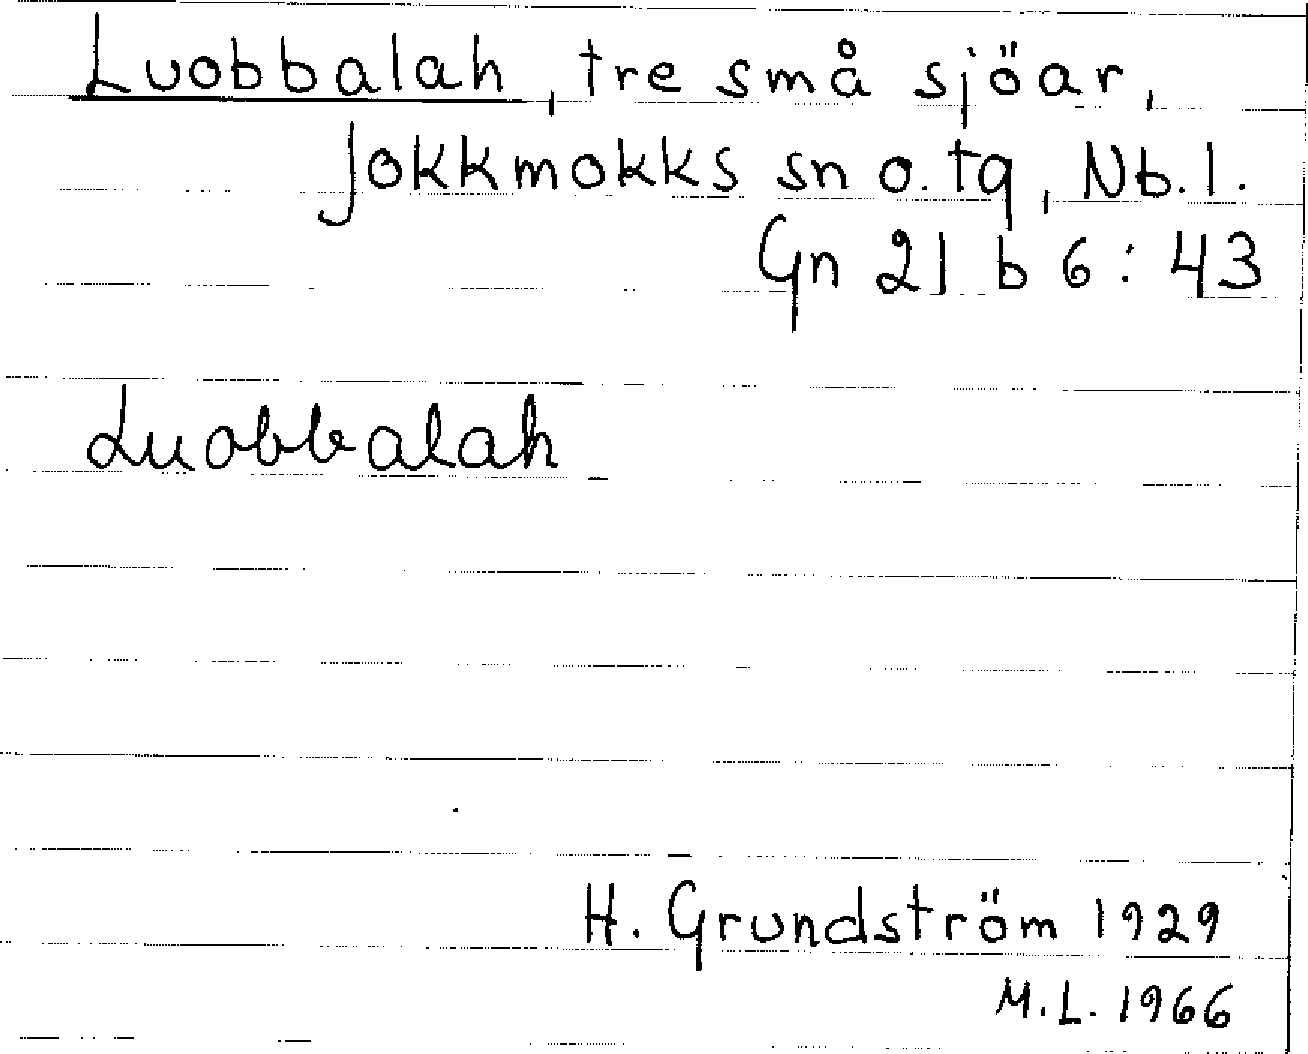 Luobbalah, tre små sjöar,
Jokkmokks sn o. tg, Nb.l.
Gn 21 b 6:43
Luobbalah
H. Grundström 1929
M.L. 1966